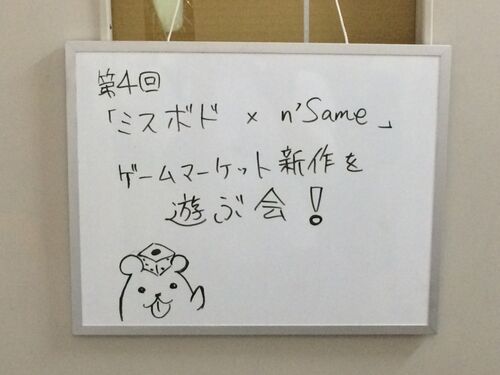 第4回
「ミスボド × n'Same」
ゲームマーケット新作を
遊ぶ会!